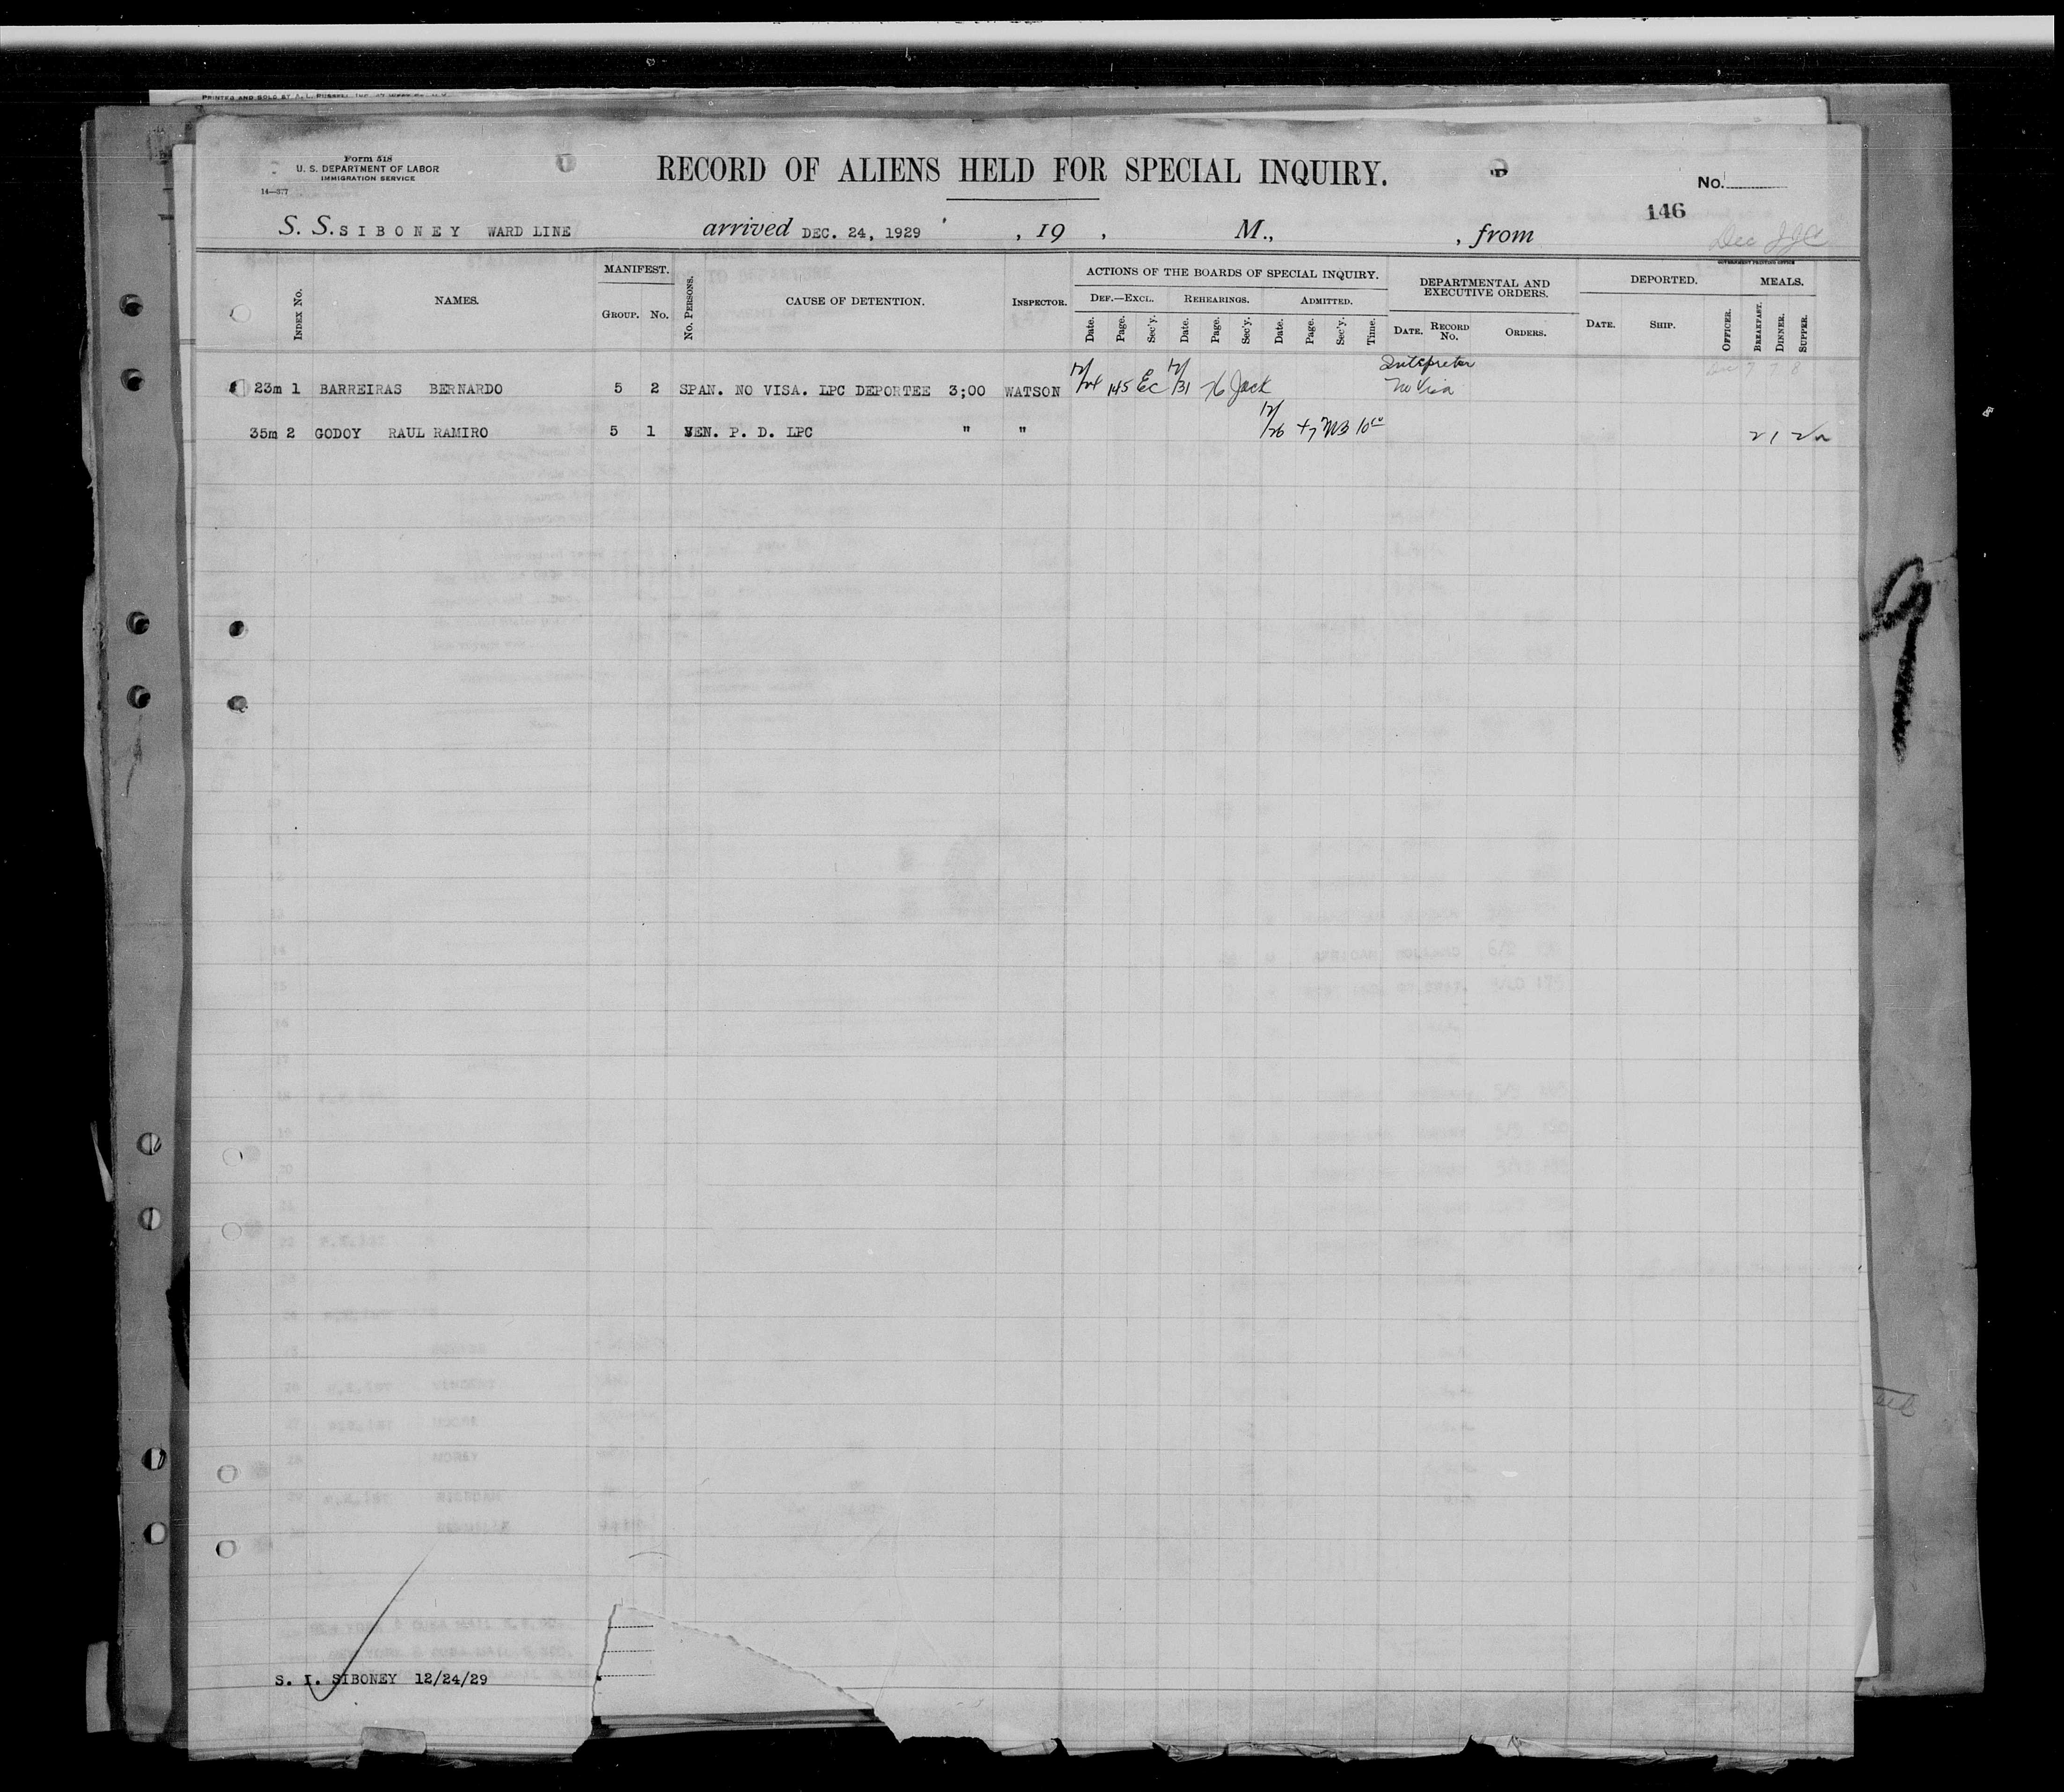 PRINTED AND SOLD BY A. L. RUSSELL, INC.
Form 518
U. S. DEPARTMENT OF LABOR
IMMIGRATION SERVICE
14—377
RECORD OF ALIENS HELD FOR SPECIAL INQUIRY.
No.
146
S. S. SIBONEY WARD LINE arrived DEC. 24, 1929 , 19 , M., , from
GOVERNMENT PRINTING OFFICE
INDEX No. NAMES. MANIFEST. GROUP. No. No. PERSONS. CAUSE OF DETENTION. INSPECTOR. ACTIONS OF THE BOARDS OF SPECIAL INQUIRY. DEPARTMENTAL AND EXECUTIVE ORDERS. DEPORTED. MEALS.
DEF.—EXCL. REHEARINGS. ADMITTED.
Date. Page. Sec'y. Date. Page. Sec'y. Date. Page. Sec'y. Time. DATE. RECORD No. ORDERS. DATE. SHIP. OFFICER. BREAKFAST. DINNER. SUPPER.
23m 1 BARREIRAS BERNARDO 5 2 SPAN. NO VISA. LPC DEPORTEE 3;00 WATSON 12/24 145 EC 12/31 76 Jack No Visa
35m 2 GODOY RAUL RAMIRO 5 1 VEN. P. D. LPC " " 12/26 +7 MB 10 2 1 2
S. I. SIBONEY 12/24/29
9